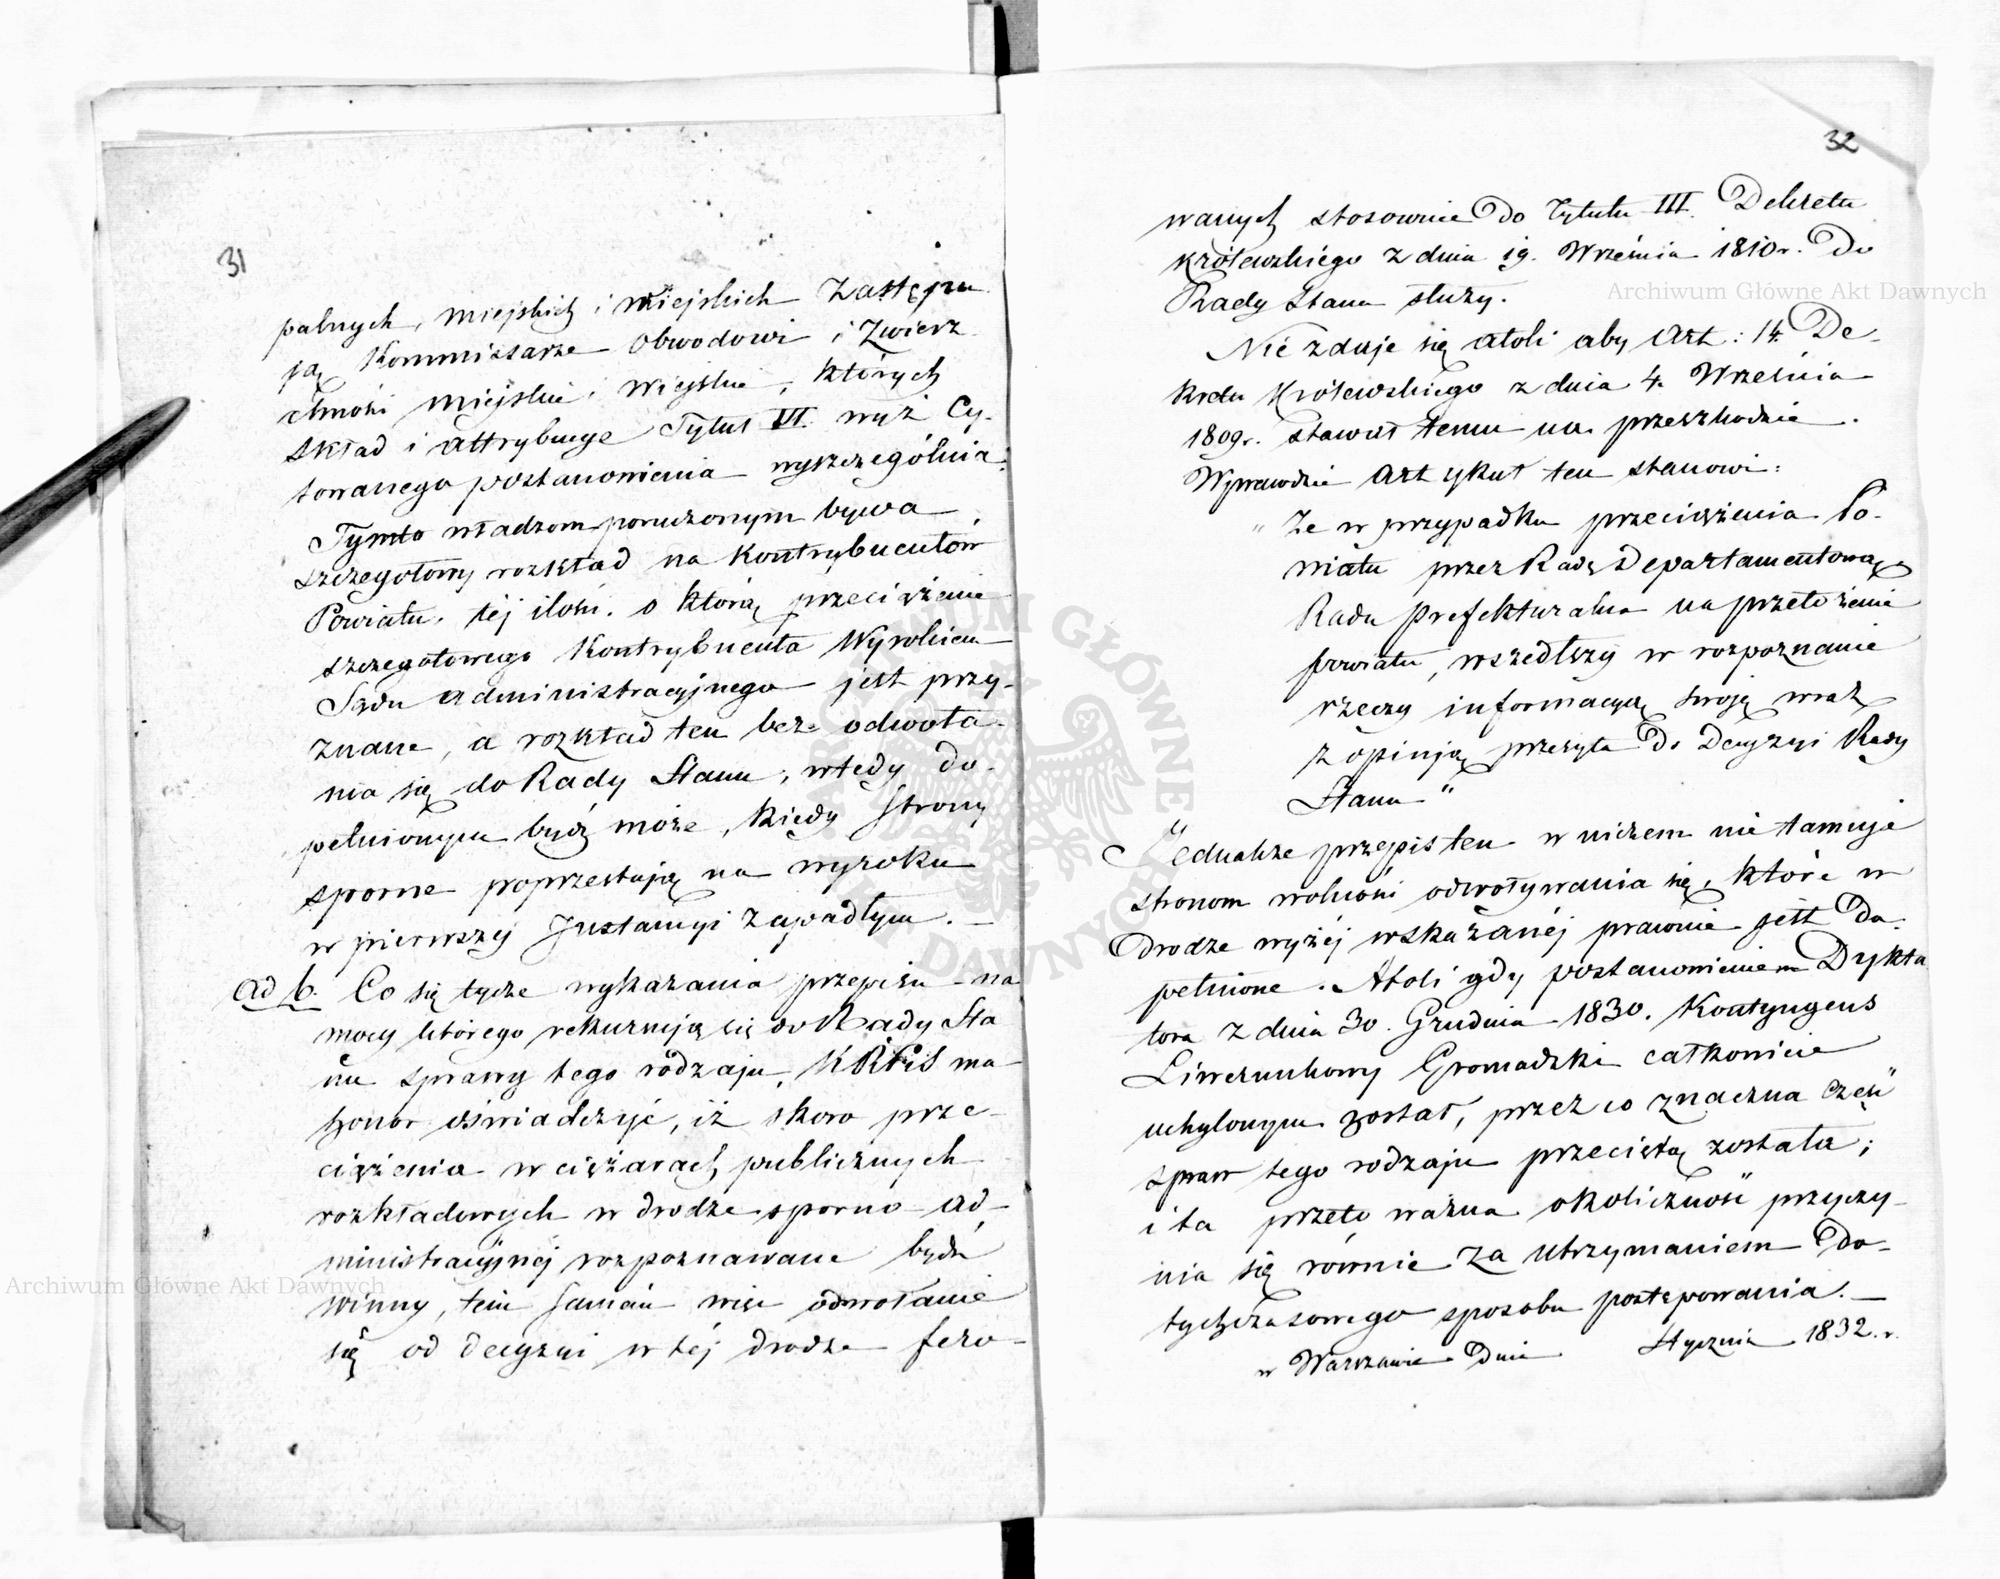 31
palnych, miejskich i wiejskich zastępu
ją Kommissarze Obwodowi i Zwierz
chności miejskie i wiejskie, których
skład i attrybucye Tytuł VI. wyż Cy-
towanego postanowienia wyszczególnia.
Tymto władzom poruczonym bywa
szczegołowy rozkład na kontrybuentów
Powiatu, tej ilości, o którą przeciążenie
szczegołowego Kontrybuenta Wyrokiem
Sądu administracyjnego jest przy-
znane, a rozkład ten bez odwoła-
nia się do Rady Stanu, wtedy do-
pełnionym bydź może, kiedy strony
sporne poprzestają na wyroku
w pierwszej Instancyi zapadłym. —
Ad 6. Co się tycze wykazania przepisu na
mocy którego rekurują się do Rady Sta
nu sprawy tego rodzaju, KRPiS ma
honor oświadczyć, iż skoro prze-
ciążenia w ciężarach publicznych
rozkładowych w drodze sporno-ad-
ministracyjnej rozpoznawane bydź
winny, tem samém więc odwołanie
się od decyzyi w tej drodze fero-
32
wanych stosownie do Tytułu III. Dekretu
królewskiego z dnia 19. Września 1810 r. do
Rady Stanu służy.
Nie zdaje się atoli aby Art: 14. De-
kretu Królewskiego z dnia 4. Września
1809 r. stawał temu na przeszkodzie.
Wprawdzie Artykuł ten stanowi:
„Że w przypadku przeciążenia Po-
wiatu przez Radę Departamentową,
Rada Prefekturalna na przełożenie
powiatu, wszedłszy w rozpoznanie
rzeczy informacyą swoją wraz
z opinją przesyła do Decyzyi Rady
Stanu"
Jednakże przepis ten w niczem nie tamuje
stronom wolności odwoływania się, które w
drodze wyżej wskazanéj prawnie jest do-
pełnione. Atoli gdy postanowieniem Dykta
tora z dnia 30. Grudnia 1830. Kontyngens
Liwerunkowy Gromadzki całkowicie
uchylonym został, przez co znaczna część
spraw tego rodzaju przeciętą została;
i ta przeto ważna okoliczność przyczy-
nia się równie za utrzymaniem do-
tychczasowego sposobu postępowania. —
w Warszawie dnia Stycznia 1832. r.
Archiwum Główne Akt Dawnych
Archiwum Główne Akt Dawnych
ARCHIWUM GŁÓWNE AKT DAWNYCH